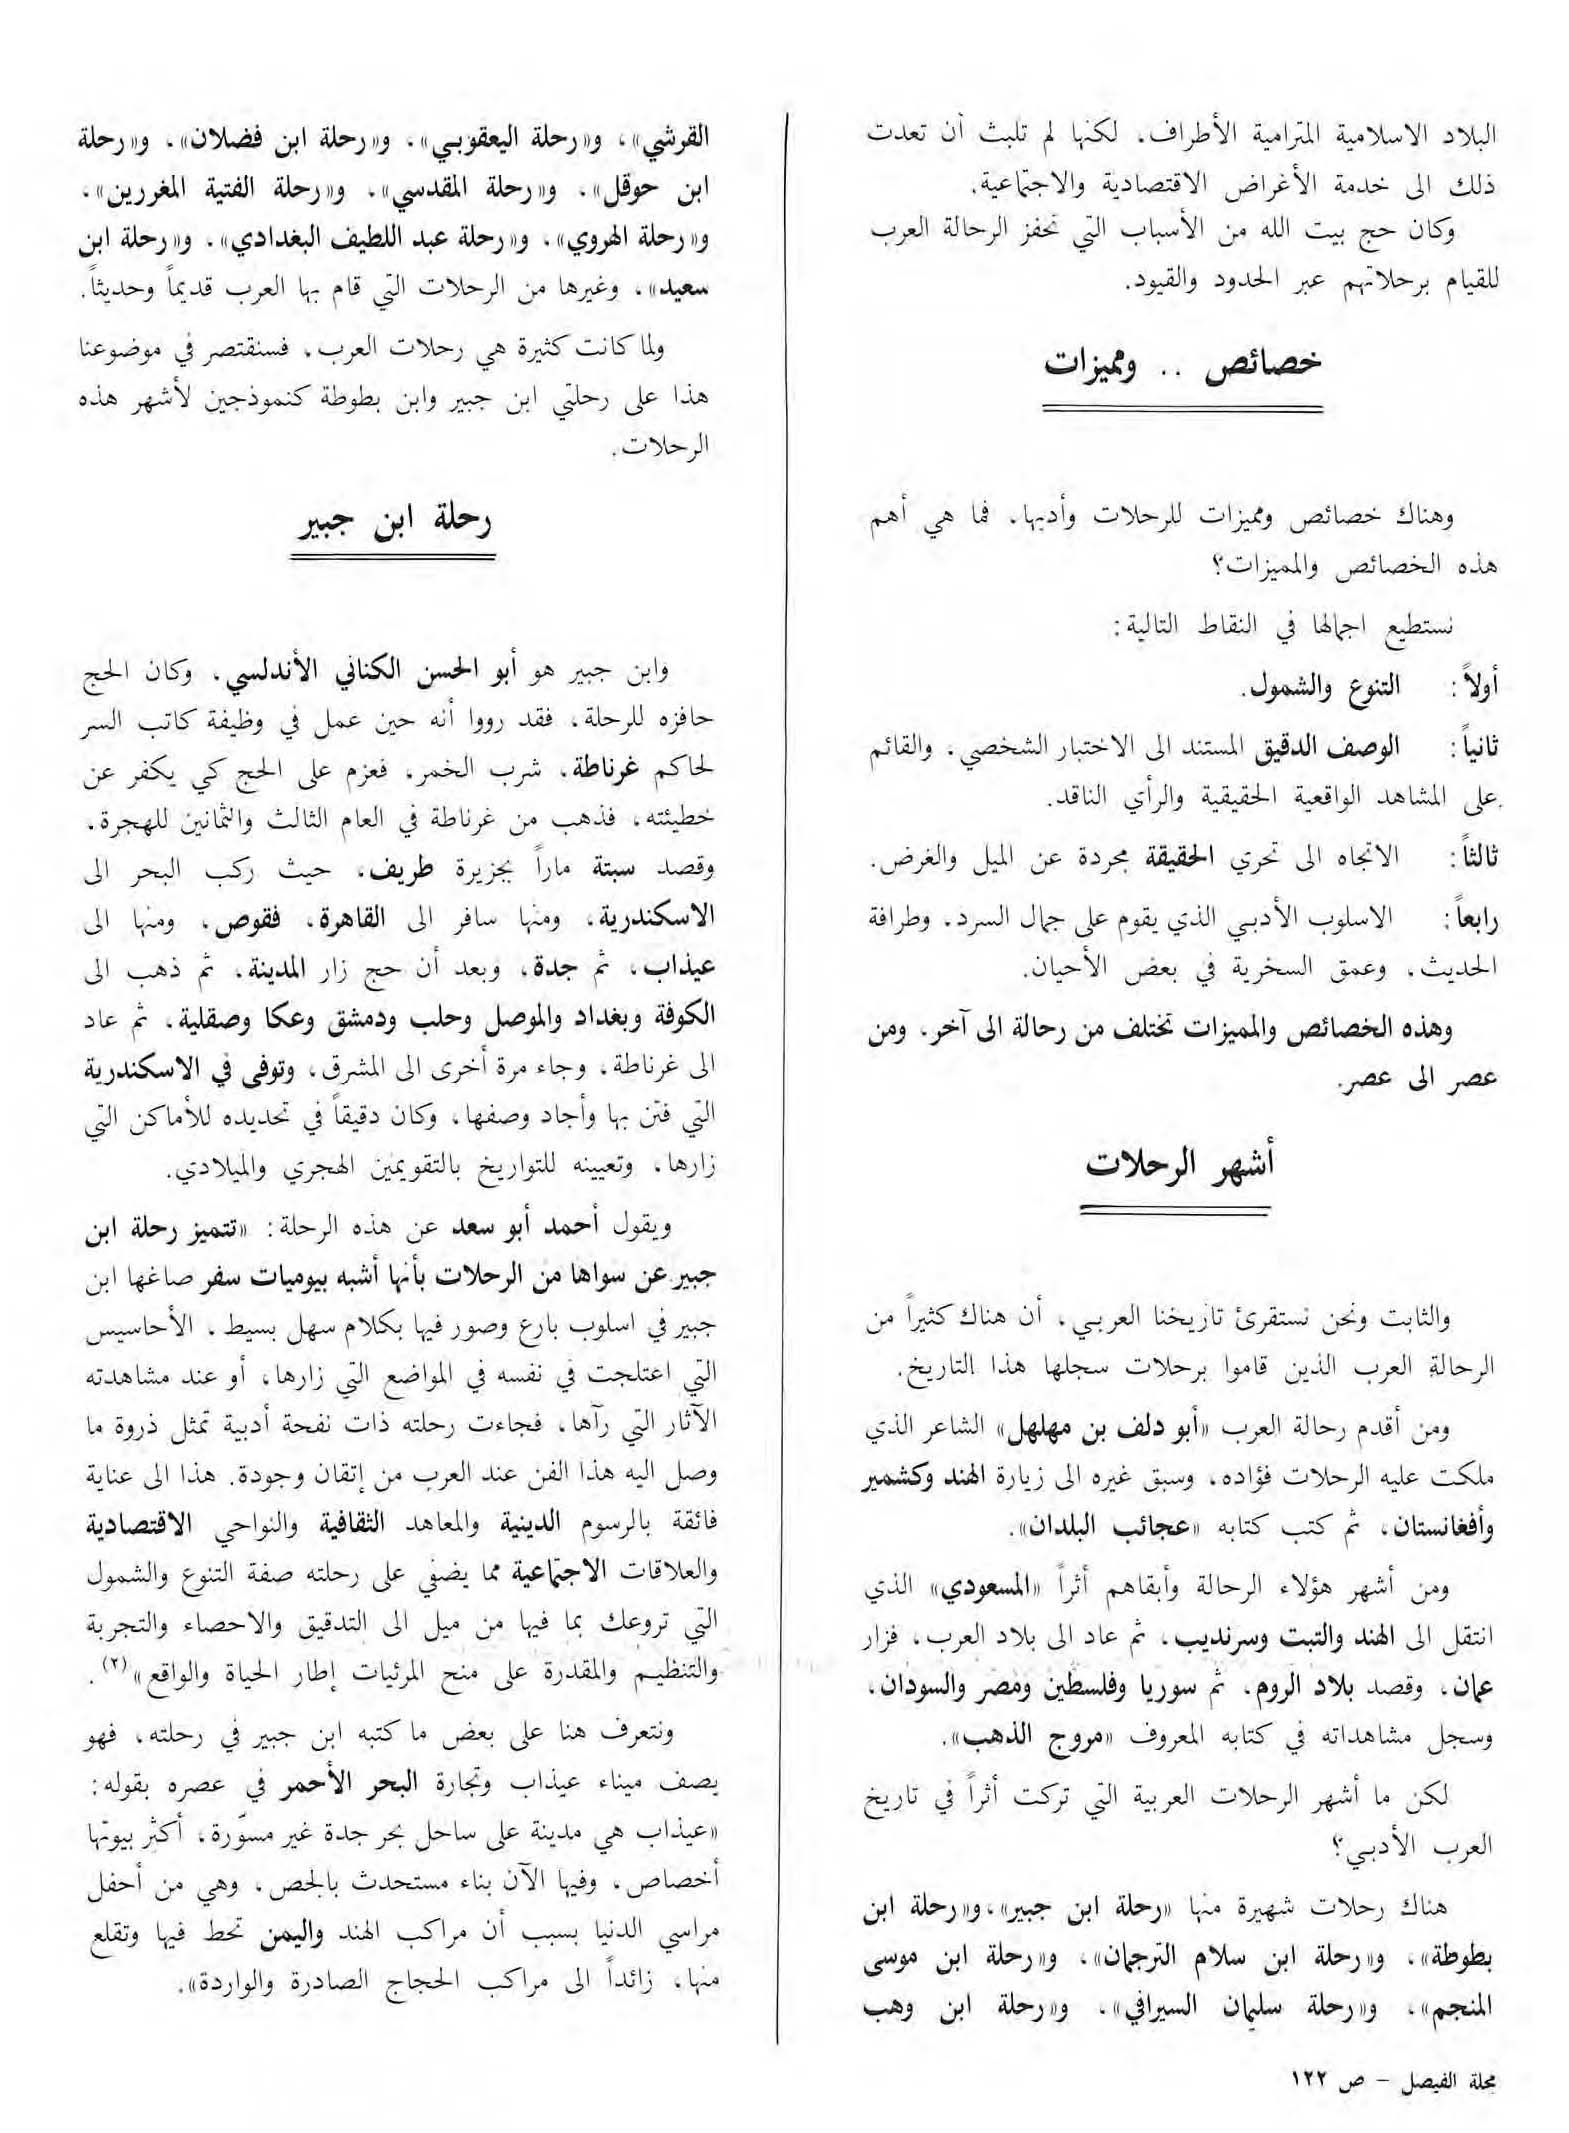 البلاد الاسلامية المترامية الأطراف، لكنها لم تلبث أن تعدت
ذلك الى خدمة الأغراض الاقتصادية والاجتماعية.
وكان حج بيت الله من الأسباب التي تحفز الرحالة العرب
للقيام برحلاتهم عبر الحدود والقيود.
خصائص .. ومميزات
وهناك خصائص ومميزات للرحلات وأدبها، فما هي أهم
هذه الخصائص والمميزات؟
نستطيع اجمالها في النقاط التالية:
أولاً: التنوع والشمول.
ثانياً: الوصف الدقيق المستند الى الاختبار الشخصي، والقائم
على المشاهد الواقعية الحقيقية والرأي الناقد.
ثالثاً: الاتجاه الى تحري الحقيقة مجردة عن الميل والغرض.
رابعاً: الاسلوب الأدبي الذي يقوم على جمال السرد، وطرافة
الحديث، وعمق السخرية في بعض الأحيان.
وهذه الخصائص والمميزات تختلف من رحالة الى آخر، ومن
عصر الى عصر.
أشهر الرحلات
والثابت ونحن نستقرئ تاريخنا العربي، أن هناك كثيراً من
الرحالة العرب الذين قاموا برحلات سجلها هذا التاريخ.
ومن أقدم رحالة العرب «أبو دلف بن مهلهل» الشاعر الذي
ملكت عليه الرحلات فؤاده، وسبق غيره الى زيارة الهند وكشمير
وأفغانستان، ثم كتب كتابه «عجائب البلدان».
ومن أشهر هؤلاء الرحالة وأبقاهم أثراً «المسعودي» الذي
انتقل الى الهند والتبت وسرنديب، ثم عاد الى بلاد العرب، فزار
عمان، وقصد بلاد الروم، ثم سوريا وفلسطين ومصر والسودان،
وسجل مشاهداته في كتابه المعروف «مروج الذهب».
لكن ما أشهر الرحلات العربية التي تركت أثراً في تاريخ
العرب الأدبي؟
هناك رحلات شهيرة منها «رحلة ابن جبير»، و«رحلة ابن
بطوطة»، و«رحلة ابن سلام الترجمان»، و«رحلة ابن موسى
المنجم»، و«رحلة سليمان السيرافي»، و«رحلة ابن وهب
القرشي»، و«رحلة اليعقوبي»، و«رحلة ابن فضلان»، و«رحلة
ابن حوقل»، و«رحلة المقدسي»، و«رحلة الفتية المغررين»،
و«رحلة الهروي»، و«رحلة عبد اللطيف البغدادي»، و«رحلة ابن
سعيد»، وغيرها من الرحلات التي قام بها العرب قديماً وحديثاً.
ولما كانت كثيرة هي رحلات العرب، فسنقتصر في موضوعنا
هذا على رحلتي ابن جبير وابن بطوطة كنموذجين لأشهر هذه
الرحلات.
رحلة ابن جبير
وابن جبير هو أبو الحسن الكناني الأندلسي، وكان الحج
حافزه للرحلة، فقد رووا أنه حين عمل في وظيفة كاتب السر
لحاكم غرناطة، شرب الخمر، فعزم على الحج كي يكفر عن
خطيئته، فذهب من غرناطة في العام الثالث والثمانين للهجرة،
وقصد سبتة ماراً بجزيرة طريف، حيث ركب البحر الى
الاسكندرية، ومنها سافر الى القاهرة، فقوص، ومنها الى
عيذاب، ثم جدة، وبعد أن حج زار المدينة، ثم ذهب الى
الكوفة وبغداد والموصل وحلب ودمشق وعكا وصقلية، ثم عاد
الى غرناطة، وجاء مرة أخرى الى المشرق، وتوفى في الاسكندرية
التي فتن بها وأجاد وصفها، وكان دقيقاً في تحديده للأماكن التي
زارها، وتعيينه للتواريخ بالتقويمين الهجري والميلادي.
ويقول أحمد أبو سعد عن هذه الرحلة: «تتميز رحلة ابن
جبير عن سواها من الرحلات بأنها أشبه بيوميات سفر صاغها ابن
جبير في اسلوب بارع وصور فيها بكلام سهل بسيط، الأحاسيس
التي اعتلجت في نفسه في المواضع التي زارها، أو عند مشاهدته
الآثار التي رآها، فجاءت رحلته ذات نفحة أدبية تمثل ذروة ما
وصل اليه هذا الفن عند العرب من إتقان وجودة. هذا الى عناية
فائقة بالرسوم الدينية والمعاهد الثقافية والنواحي الاقتصادية
والعلاقات الاجتماعية مما يضفي على رحلته صفة التنوع والشمول
التي تروعك بما فيها من ميل الى التدقيق والاحصاء والتجربة
والتنظيم والمقدرة على منح المرئيات إطار الحياة والواقع»(٢).
ونتعرف هنا على بعض ما كتبه ابن جبير في رحلته، فهو
يصف ميناء عيذاب وتجارة البحر الأحمر في عصره بقوله:
«عيذاب هي مدينة على ساحل بحر جدة غير مسوّرة، أكثر بيوتها
أخصاص، وفيها الآن بناء مستحدث بالجص، وهي من أحفل
مراسي الدنيا بسبب أن مراكب الهند واليمن تحط فيها وتقلع
منها، زائداً الى مراكب الحجاج الصادرة والواردة».
مجلة الفيصل – ص ١٢٢